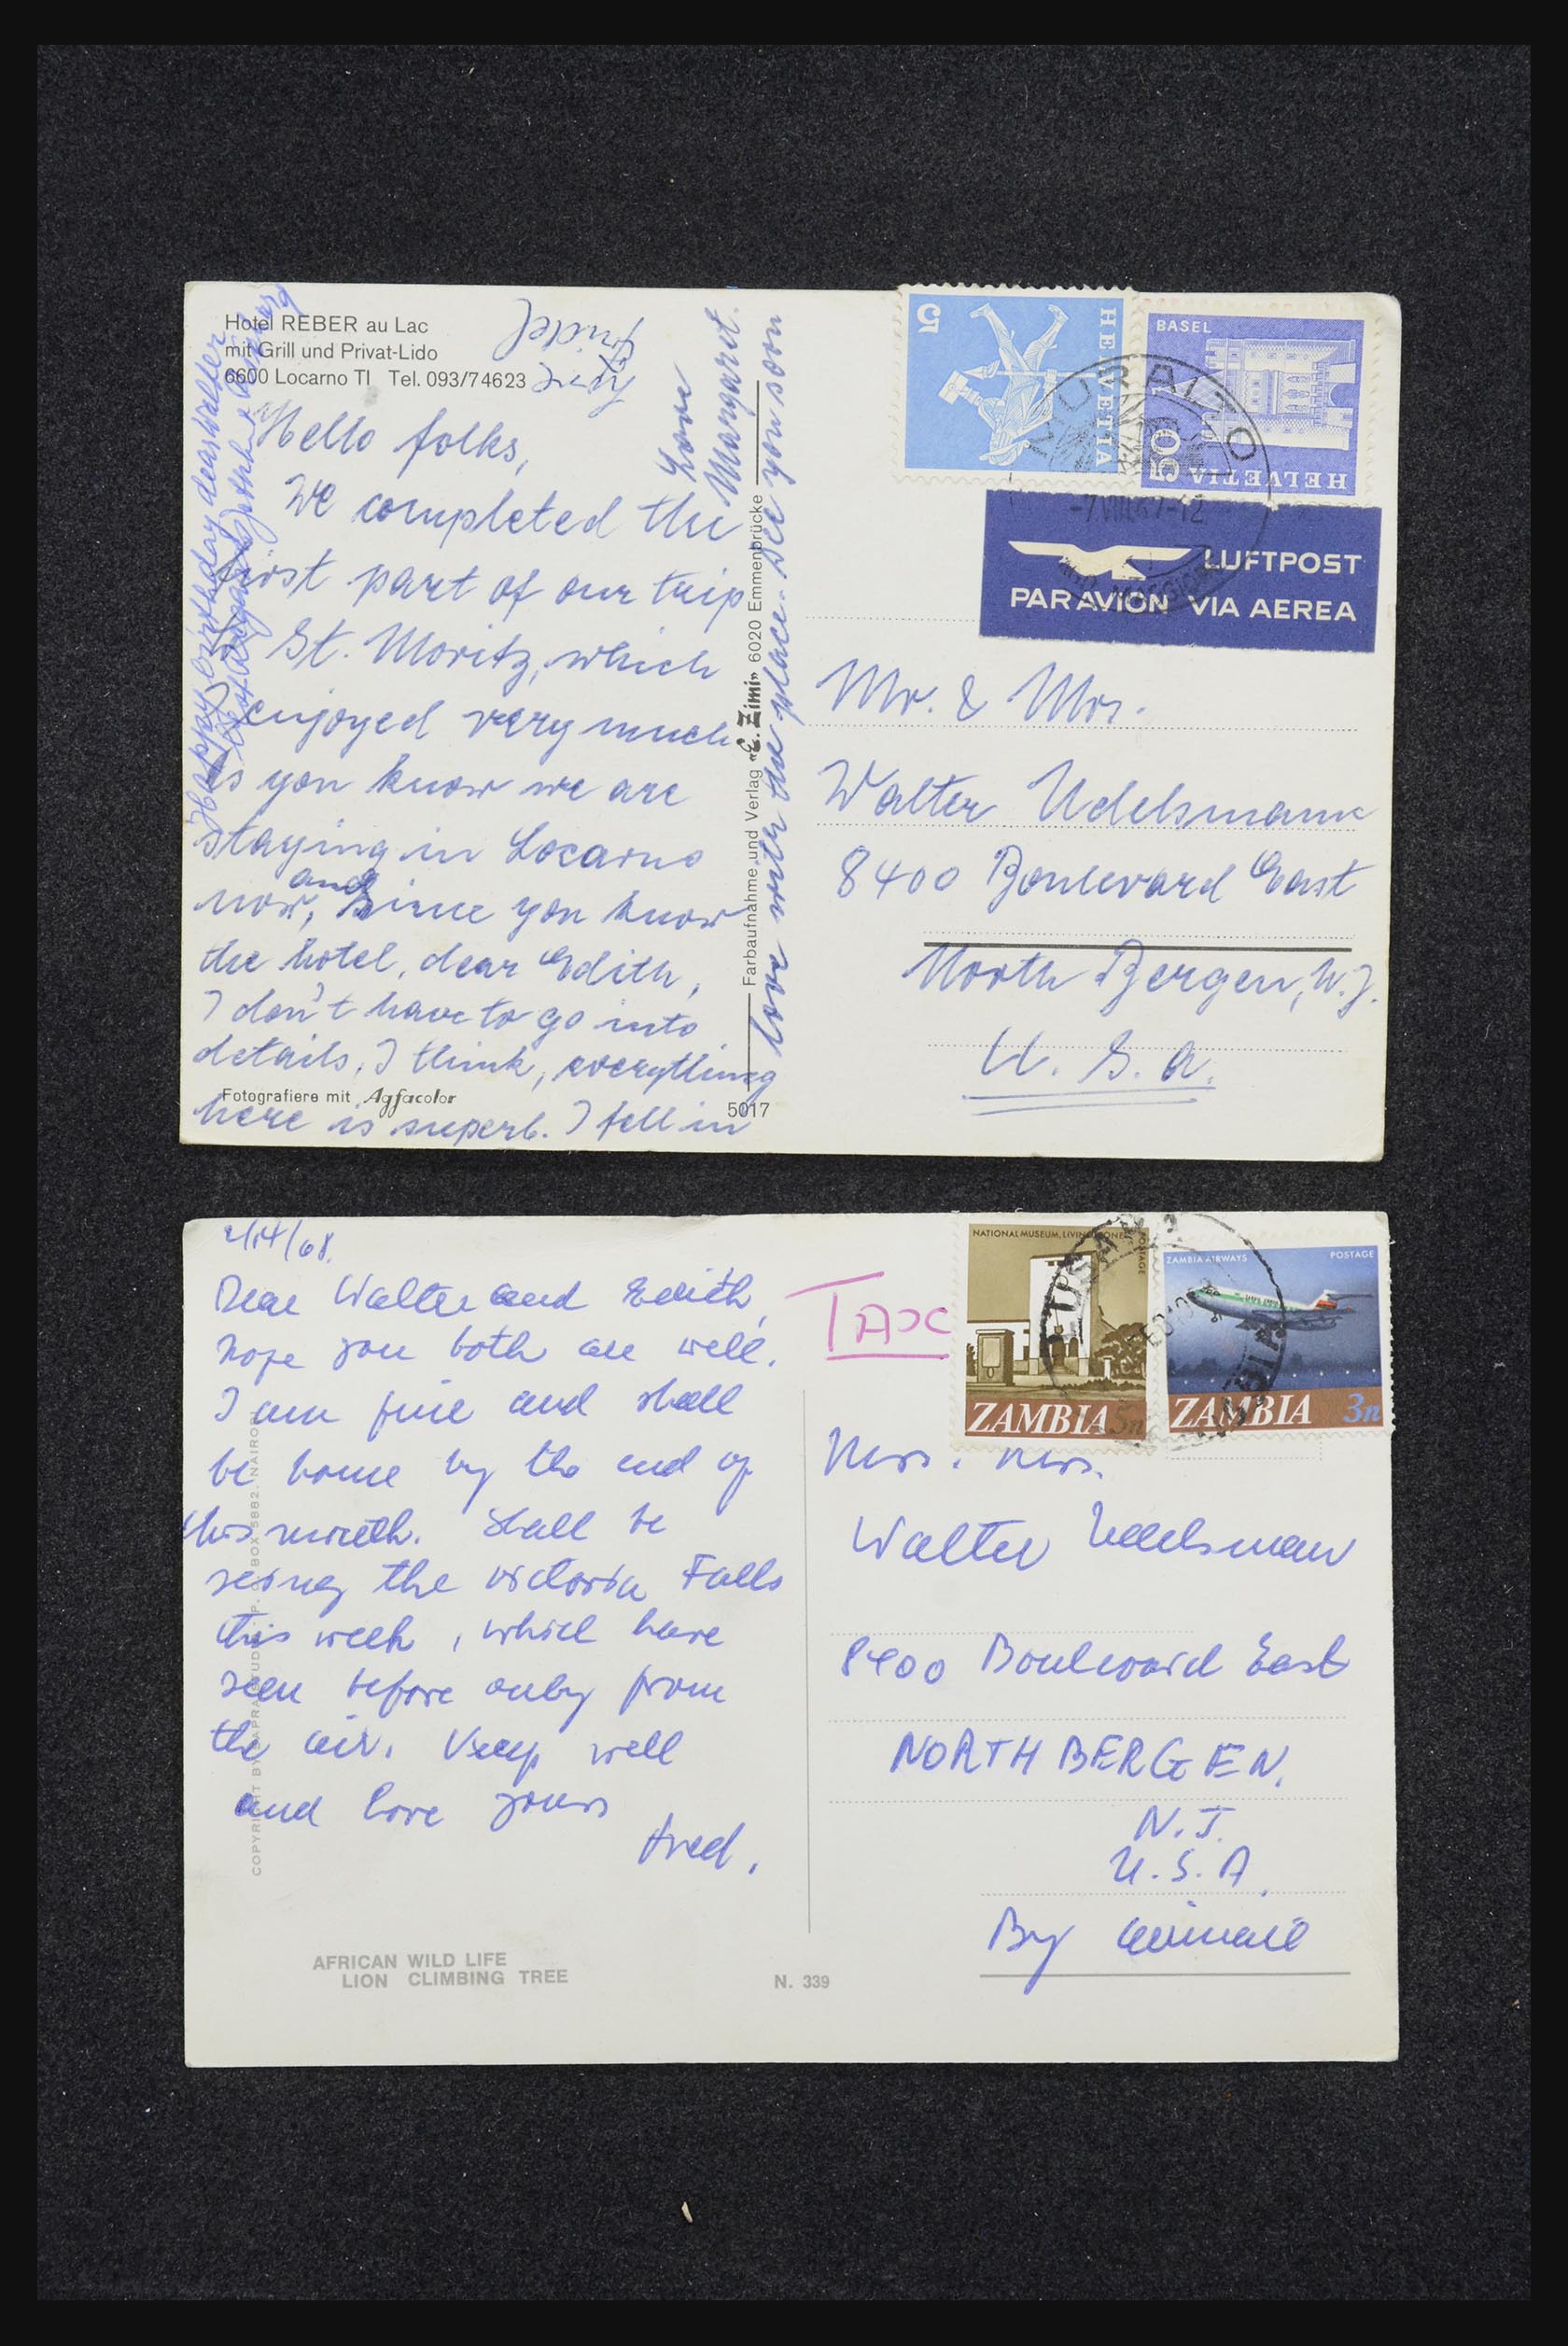 Hotel REBER au Lac
mit Grill und Privat-Lido
6600 Locarno TI Tel. 093/74623
Hello folks,
We completed the
first part of our trip
St. Moritz, which
enjoyed very much
as you know we are
staying in Locarno
now, and since you know
the hotel, dear Edith,
I don't have to go into
details, I think, everything
here is superb. I fell in
love with the place. See you soon
Love
Margaret.
Happy birthday dear Walter
Fotografiere mit Agfacolor
5017
Farbaufnahme und Verlag «E. Zimi» 6020 Emmenbrücke
5
HELVETIA
BASEL
50
HELVETIA
MURALTO
LUFTPOST
PAR AVION VIA AEREA
Mr. & Mrs.
Walter Udelsmann
8400 Boulevard East
North Bergen, N.J.
U. S. A.
2/14/68.
Dear Walter and Edith,
hope you both are well.
I am fine and shall
be home by the end of
this month. Shall be
seing the Victoria Falls
this week, which have
seen before only from
the air. Keep well
and love yours
Fred.
TAX
NATIONAL MUSEUM, LIVINGSTONE
POSTAGE
ZAMBIA 5n
ZAMBIA AIRWAYS
POSTAGE
ZAMBIA 3n
Walter Udelsman
8400 Boulevard East
NORTH BERGEN.
N.J.
U.S.A.
By airmail
AFRICAN WILD LIFE
LION CLIMBING TREE
N. 339